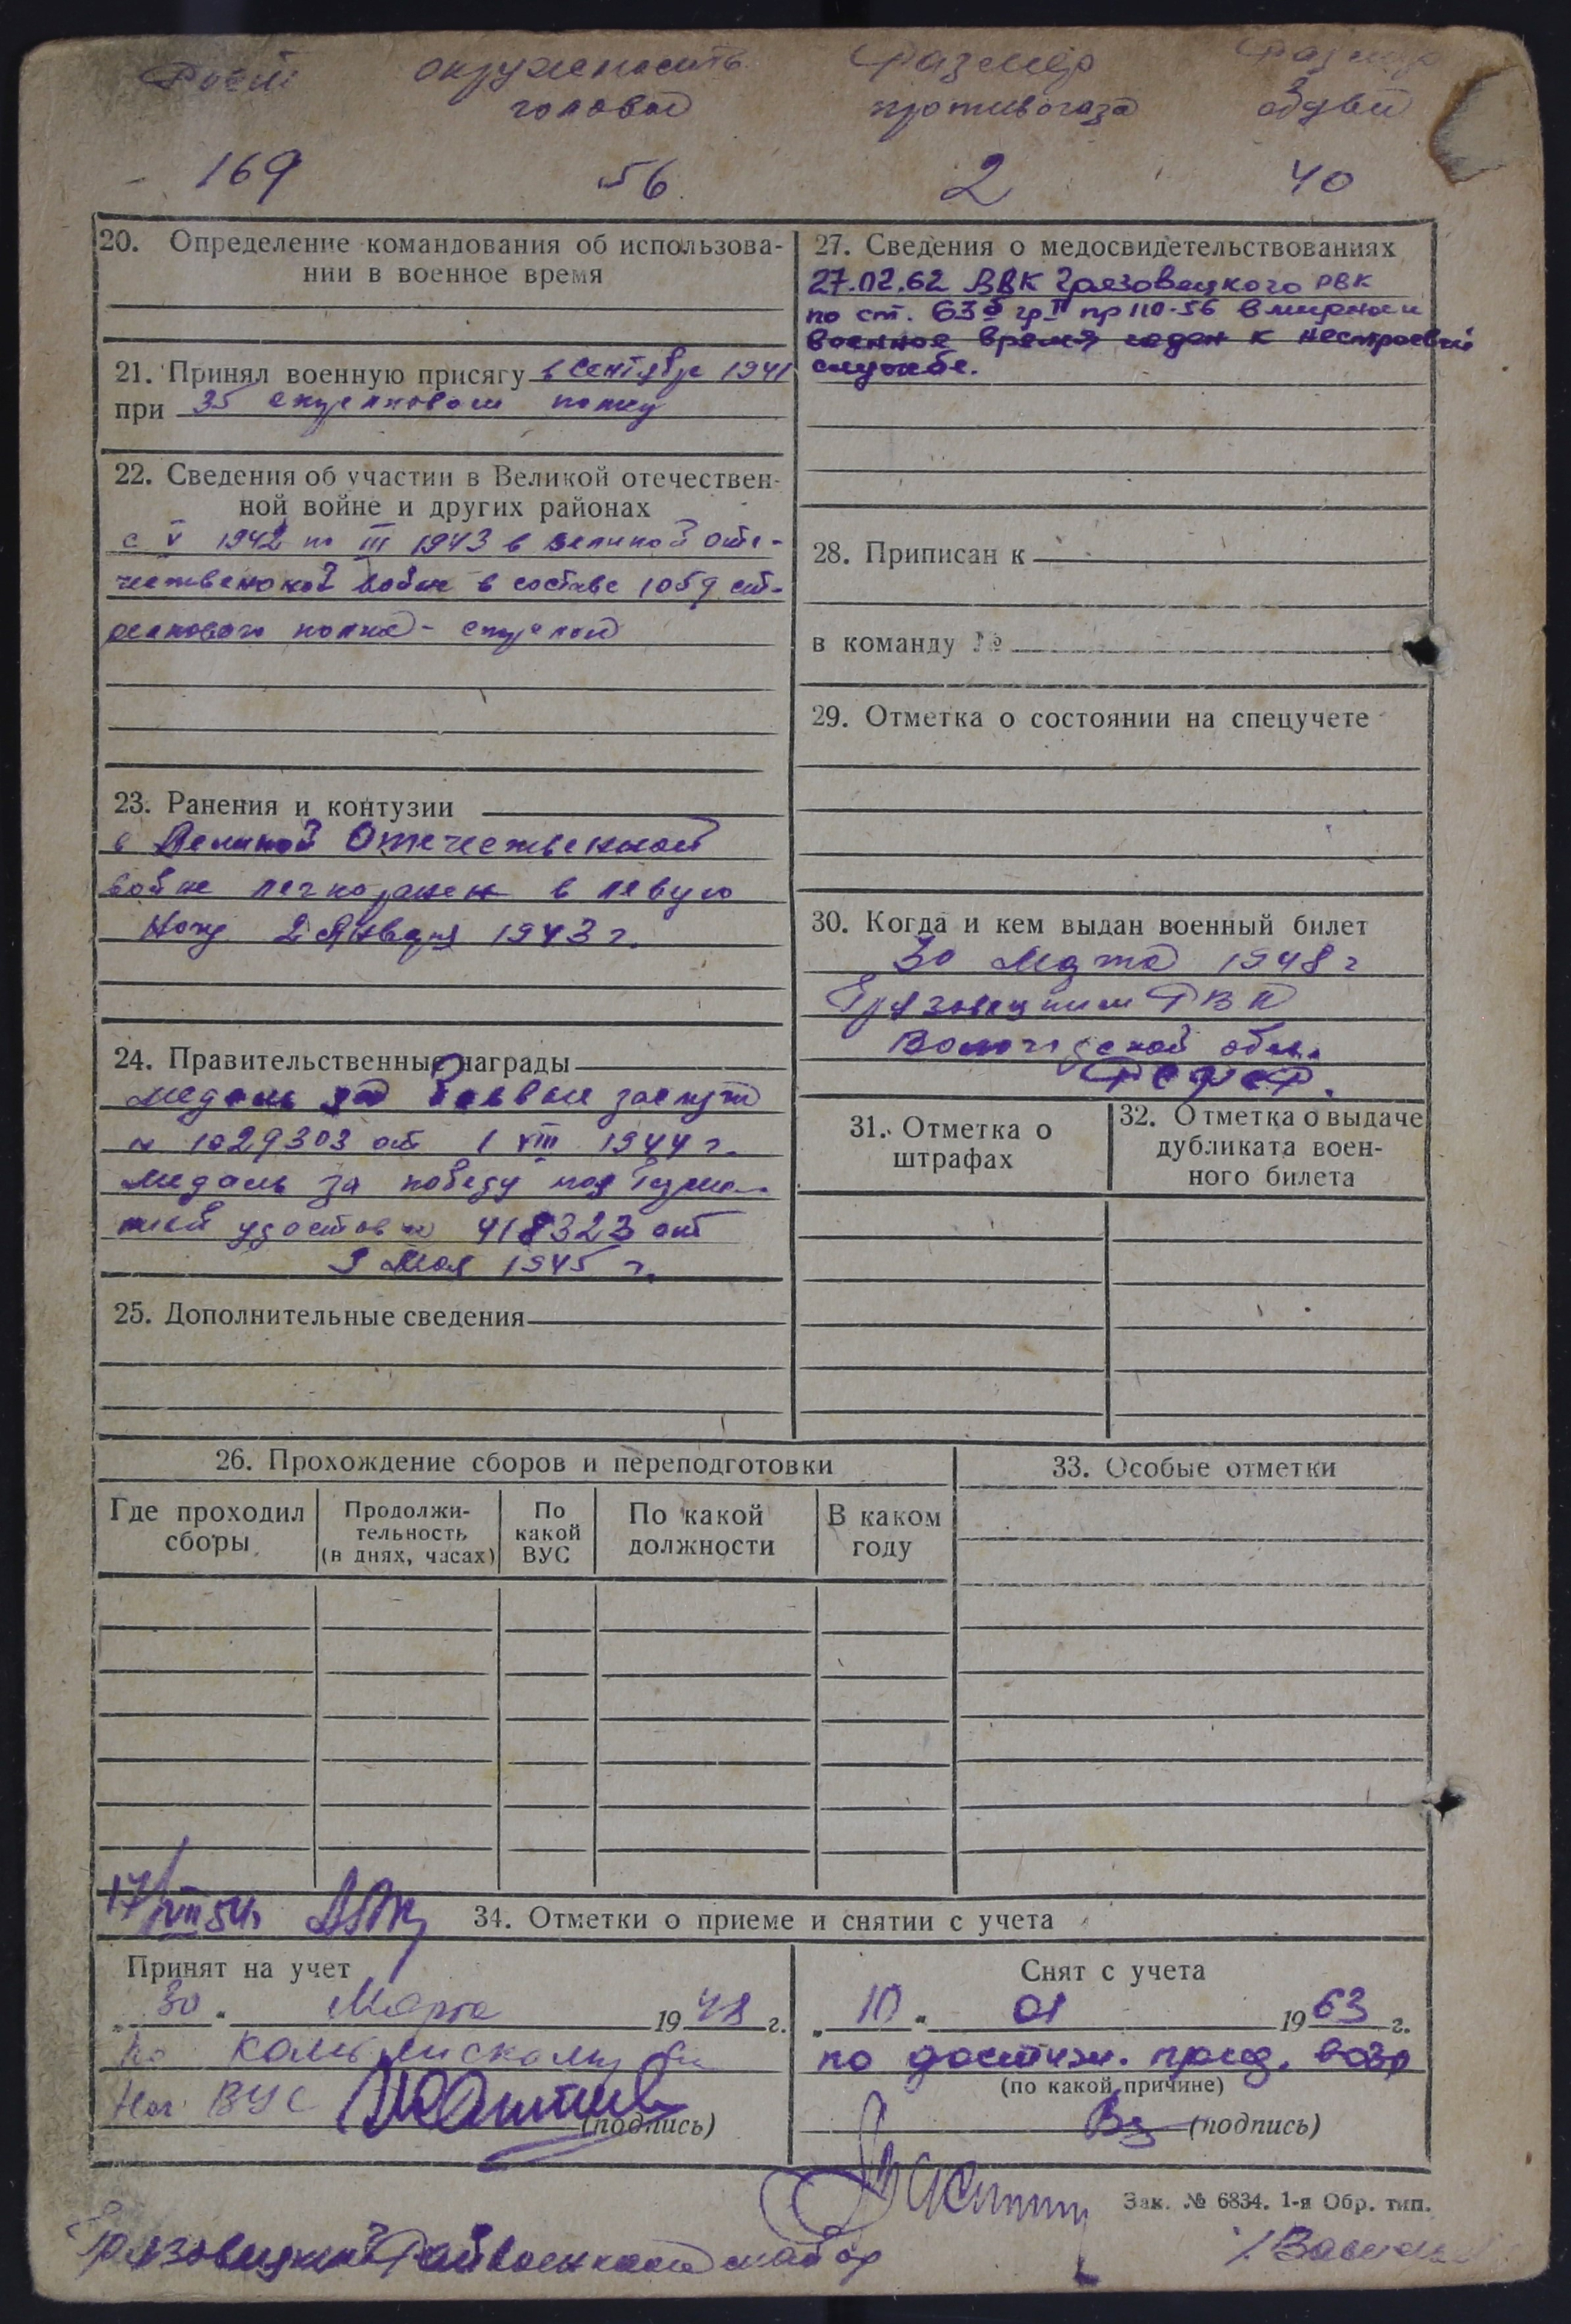 Рост окружность размер размер
головы противогаза обуви
169 56 2 40
20. Определение командования об использова-
нии в военное время
21. Принял военную присягу в сентябре 1941
при 35 стрелковом полку
22. Сведения об участии в Великой отечествен-
ной войне и других районах
с V 1942 по III 1943 в великой оте-
чественной войне в составе 1059 ст-
релкового полка - стрелой
23. Ранения и контузии
в Великой Отечественной
войне легкоранен в левую
ногу 2 Января 1943 г.
24. Правительственные награды
медаль за боевые заслуги
№ 1029303 от 1 VIII 1944 г.
медаль за победу над Герма-
нией удостов № 418323 от
9 Мая 1945 г.
25. Дополнительные сведения
27. Сведения о медосвидетельствованиях
27.02.62 ВВК Грязовецкого РВК
по ст. 63б гр II пр 110-56 в мирное и
военное время годен к нестроевой
службе.
28. Приписан к
в команду №
29. Отметка о состоянии на спецучете
30. Когда и кем выдан военный билет
30 Марта 1948 г
Грязовецким РВК
Вологодской обл.
РСФСР.
31. Отметка о
штрафах
32. Отметка о выдаче
дубликата воен-
ного билета
26. Прохождение сборов и переподготовки
Где проходил
сборы
Продолжи-
тельность
(в днях, часах)
По
какой
ВУС
По какой
должности
В каком
году
33. Особые отметки
17/VIII 54г
34. Отметки о приеме и снятии с учета
Принят на учет
„30“ Марта 1948 г.
по
Нач ВУС
(подпись)
Снят с учета
„10“ 01 1963 г.
по достиж. пред. возр
(по какой причине)
(подпись)
Зак. № 6834. 1-я Обр. тип.
Грязовецкий Райвоенкомат майор